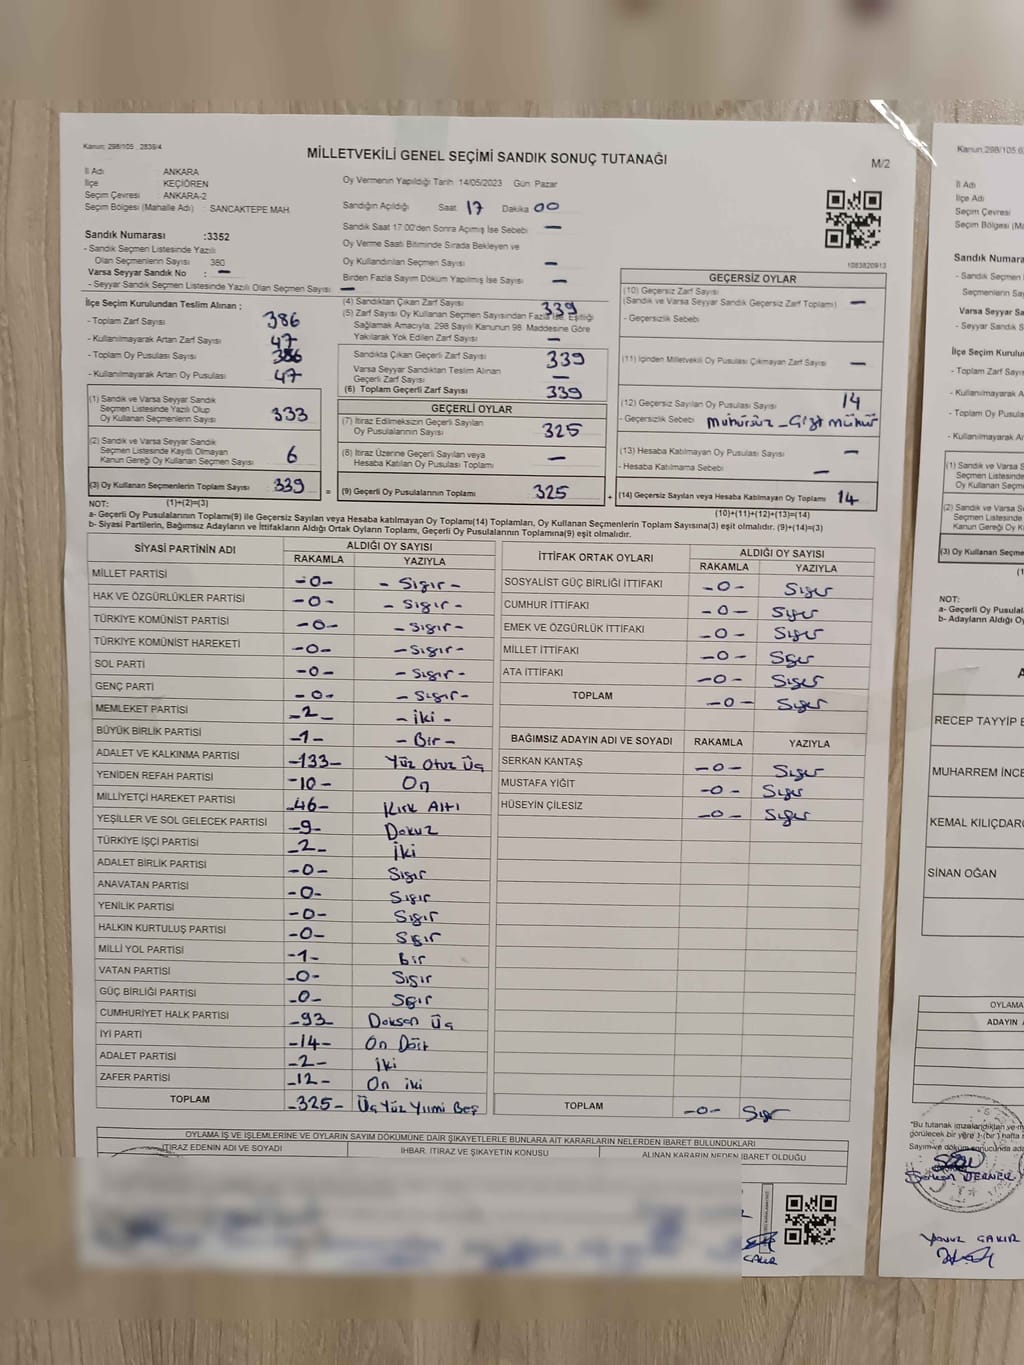 Kanun: 298/105 , 2839/4
MİLLETVEKİLİ GENEL SEÇİMİ SANDIK SONUÇ TUTANAĞI
M/2
İl Adı ANKARA
İlçe KEÇİÖREN
Seçim Çevresi : ANKARA-2
Seçim Bölgesi (Mahalle Adı) : SANCAKTEPE MAH.
Sandık Numarası :3352
- Sandık Seçmen Listesinde Yazılı
Olan Seçmenlerin Sayısı 380
Varsa Seyyar Sandık No : —
- Seyyar Sandık Seçmen Listesinde Yazılı Olan Seçmen Sayısı : —
Oy Vermenin Yapıldığı Tarih: 14/05/2023 Gün: Pazar
Sandığın Açıldığı Saat 17 Dakika 00
Sandık Saat 17:00'den Sonra Açılmış İse Sebebi —
Oy Verme Saati Bitiminde Sırada Bekleyen ve
Oy Kullandırılan Seçmen Sayısı —
Birden Fazla Sayım Döküm Yapılmış İse Sayısı —
1083820913
İlçe Seçim Kurulundan Teslim Alınan ;
- Toplam Zarf Sayısı 386
- Kullanılmayarak Artan Zarf Sayısı 47
- Toplam Oy Pusulası Sayısı 386
- Kullanılmayarak Artan Oy Pusulası 47
(1) Sandık ve Varsa Seyyar Sandık
Seçmen Listesinde Yazılı Olup
Oy Kullanan Seçmenlerin Sayısı 333
(2) Sandık ve Varsa Seyyar Sandık
Seçmen Listesinde Kayıtlı Olmayan
Kanun Gereği Oy Kullanan Seçmen Sayısı 6
(3) Oy Kullanan Seçmenlerin Toplam Sayısı 339
(1)+(2)=(3)
(4) Sandıktan Çıkan Zarf Sayısı 339
(5) Zarf Sayısı Oy Kullanan Seçmen Sayısından Fazla İse, Eşitliği
Sağlamak Amacıyla; 298 Sayılı Kanunun 98. Maddesine Göre
Yakılarak Yok Edilen Zarf Sayısı —
Sandıkta Çıkan Geçerli Zarf Sayısı 339
Varsa Seyyar Sandıktan Teslim Alınan
Geçerli Zarf Sayısı —
(6) Toplam Geçerli Zarf Sayısı 339
GEÇERLİ OYLAR
(7) İtiraz Edilmeksizin Geçerli Sayılan
Oy Pusulalarının Sayısı 325
(8) İtiraz Üzerine Geçerli Sayılan veya
Hesaba Katılan Oy Pusulası Toplamı —
= (9) Geçerli Oy Pusulalarının Toplamı 325
GEÇERSİZ OYLAR
(10) Geçersiz Zarf Sayısı
(Sandık ve Varsa Seyyar Sandık Geçersiz Zarf Toplamı) —
- Geçersizlik Sebebi
(11) İçinden Milletvekili Oy Pusulası Çıkmayan Zarf Sayısı —
(12) Geçersiz Sayılan Oy Pusulası Sayısı 14
- Geçersizlik Sebebi Mühürsüz - Çift Mühür
(13) Hesaba Katılmayan Oy Pusulası Sayısı —
- Hesaba Katılmama Sebebi —
+ (14) Geçersiz Sayılan veya Hesaba Katılmayan Oy Toplamı 14
(10)+(11)+(12)+(13)=(14)
NOT:
a- Geçerli Oy Pusulalarının Toplamı(9) ile Geçersiz Sayılan veya Hesaba katılmayan Oy Toplamı(14) Toplamları, Oy Kullanan Seçmenlerin Toplam Sayısına(3) eşit olmalıdır. (9)+(14)=(3)
b- Siyasi Partilerin, Bağımsız Adayların ve İttifakların Aldığı Ortak Oyların Toplamı, Geçerli Oy Pusulalarının Toplamına(9) eşit olmalıdır.
SİYASİ PARTİNİN ADI ALDIĞI OY SAYISI
RAKAMLA YAZIYLA
MİLLET PARTİSİ -0- - Sıgır -
HAK VE ÖZGÜRLÜKLER PARTİSİ -0- - Sıgır -
TÜRKİYE KOMÜNİST PARTİSİ -0- - Sıgır -
TÜRKİYE KOMÜNİST HAREKETİ -0- - Sıgır -
SOL PARTİ -0- - Sıgır -
GENÇ PARTİ -0- - Sıgır -
MEMLEKET PARTİSİ -2- - İki -
BÜYÜK BİRLİK PARTİSİ -1- - Bir -
ADALET VE KALKINMA PARTİSİ -133- Yüz Otuz Üç
YENİDEN REFAH PARTİSİ -10- On
MİLLİYETÇİ HAREKET PARTİSİ -46- Kırk Altı
YEŞİLLER VE SOL GELECEK PARTİSİ -9- Dokuz
TÜRKİYE İŞÇİ PARTİSİ -2- İki
ADALET BİRLİK PARTİSİ -0- Sıgır
ANAVATAN PARTİSİ -0- Sıgır
YENİLİK PARTİSİ -0- Sıgır
HALKIN KURTULUŞ PARTİSİ -0- Sıgır
MİLLİ YOL PARTİSİ -1- Bir
VATAN PARTİSİ -0- Sıgır
GÜÇ BİRLİĞİ PARTİSİ -0- Sıgır
CUMHURİYET HALK PARTİSİ -93- Doksan Üç
İYİ PARTİ -14- On Dört
ADALET PARTİSİ -2- İki
ZAFER PARTİSİ -12- On iki
TOPLAM -325- Üç Yüz Yirmi Beş
İTTİFAK ORTAK OYLARI ALDIĞI OY SAYISI
RAKAMLA YAZIYLA
SOSYALİST GÜÇ BİRLİĞİ İTTİFAKI -0- Sıgır
CUMHUR İTTİFAKI -0- Sıgır
EMEK VE ÖZGÜRLÜK İTTİFAKI -0- Sıgır
MİLLET İTTİFAKI -0- Sıgır
ATA İTTİFAKI -0- Sıgır
TOPLAM -0- Sıgır
BAĞIMSIZ ADAYIN ADI VE SOYADI RAKAMLA YAZIYLA
SERKAN KANTAŞ -0- Sıgır
MUSTAFA YİĞİT -0- Sıgır
HÜSEYİN ÇİLESİZ -0- Sıgır
TOPLAM -0- Sıgır
OYLAMA İŞ VE İŞLEMLERİNE VE OYLARIN SAYIM DÖKÜMÜNE DAİR ŞİKAYETLERLE BUNLARA AİT KARARLARIN NELERDEN İBARET BULUNDUKLARI
İTİRAZ EDENİN ADI VE SOYADI İHBAR, İTİRAZ VE ŞİKAYETİN KONUSU ALINAN KARARIN NEDEN İBARET OLDUĞU
Kanun:298/105
İl Adı
İlçe Adı
Seçim Çevresi
Seçim Bölgesi (M
Sandık Numara
- Sandık Seçmen
Seçmenlerin Say
Varsa Seyyar S
- Seyyar Sandık
İlçe Seçim Kurulu
- Toplam Zarf
- Kullanılmayar
- Toplam Oy Pusu
- Kullanılmayar
(1) Sandık ve Va
Seçmen Liste
Oy Kullanan
(2) Sandık ve Va
Seçmen Liste
Kanun Gereği
(3) Oy Kullanan Se
NOT:
a- Geçerli Oy Pusula
b- Adayların Aldığı Oy
RECEP TAYYİP
MUHARREM İNCE
KEMAL KILIÇDAR
SİNAN OĞAN
OYLAMA
ADAYIN
"Bu tutanak imzalandıktan
görülecek bir yere 1 (bir) hafta
Sayım ve döküm sonucunda